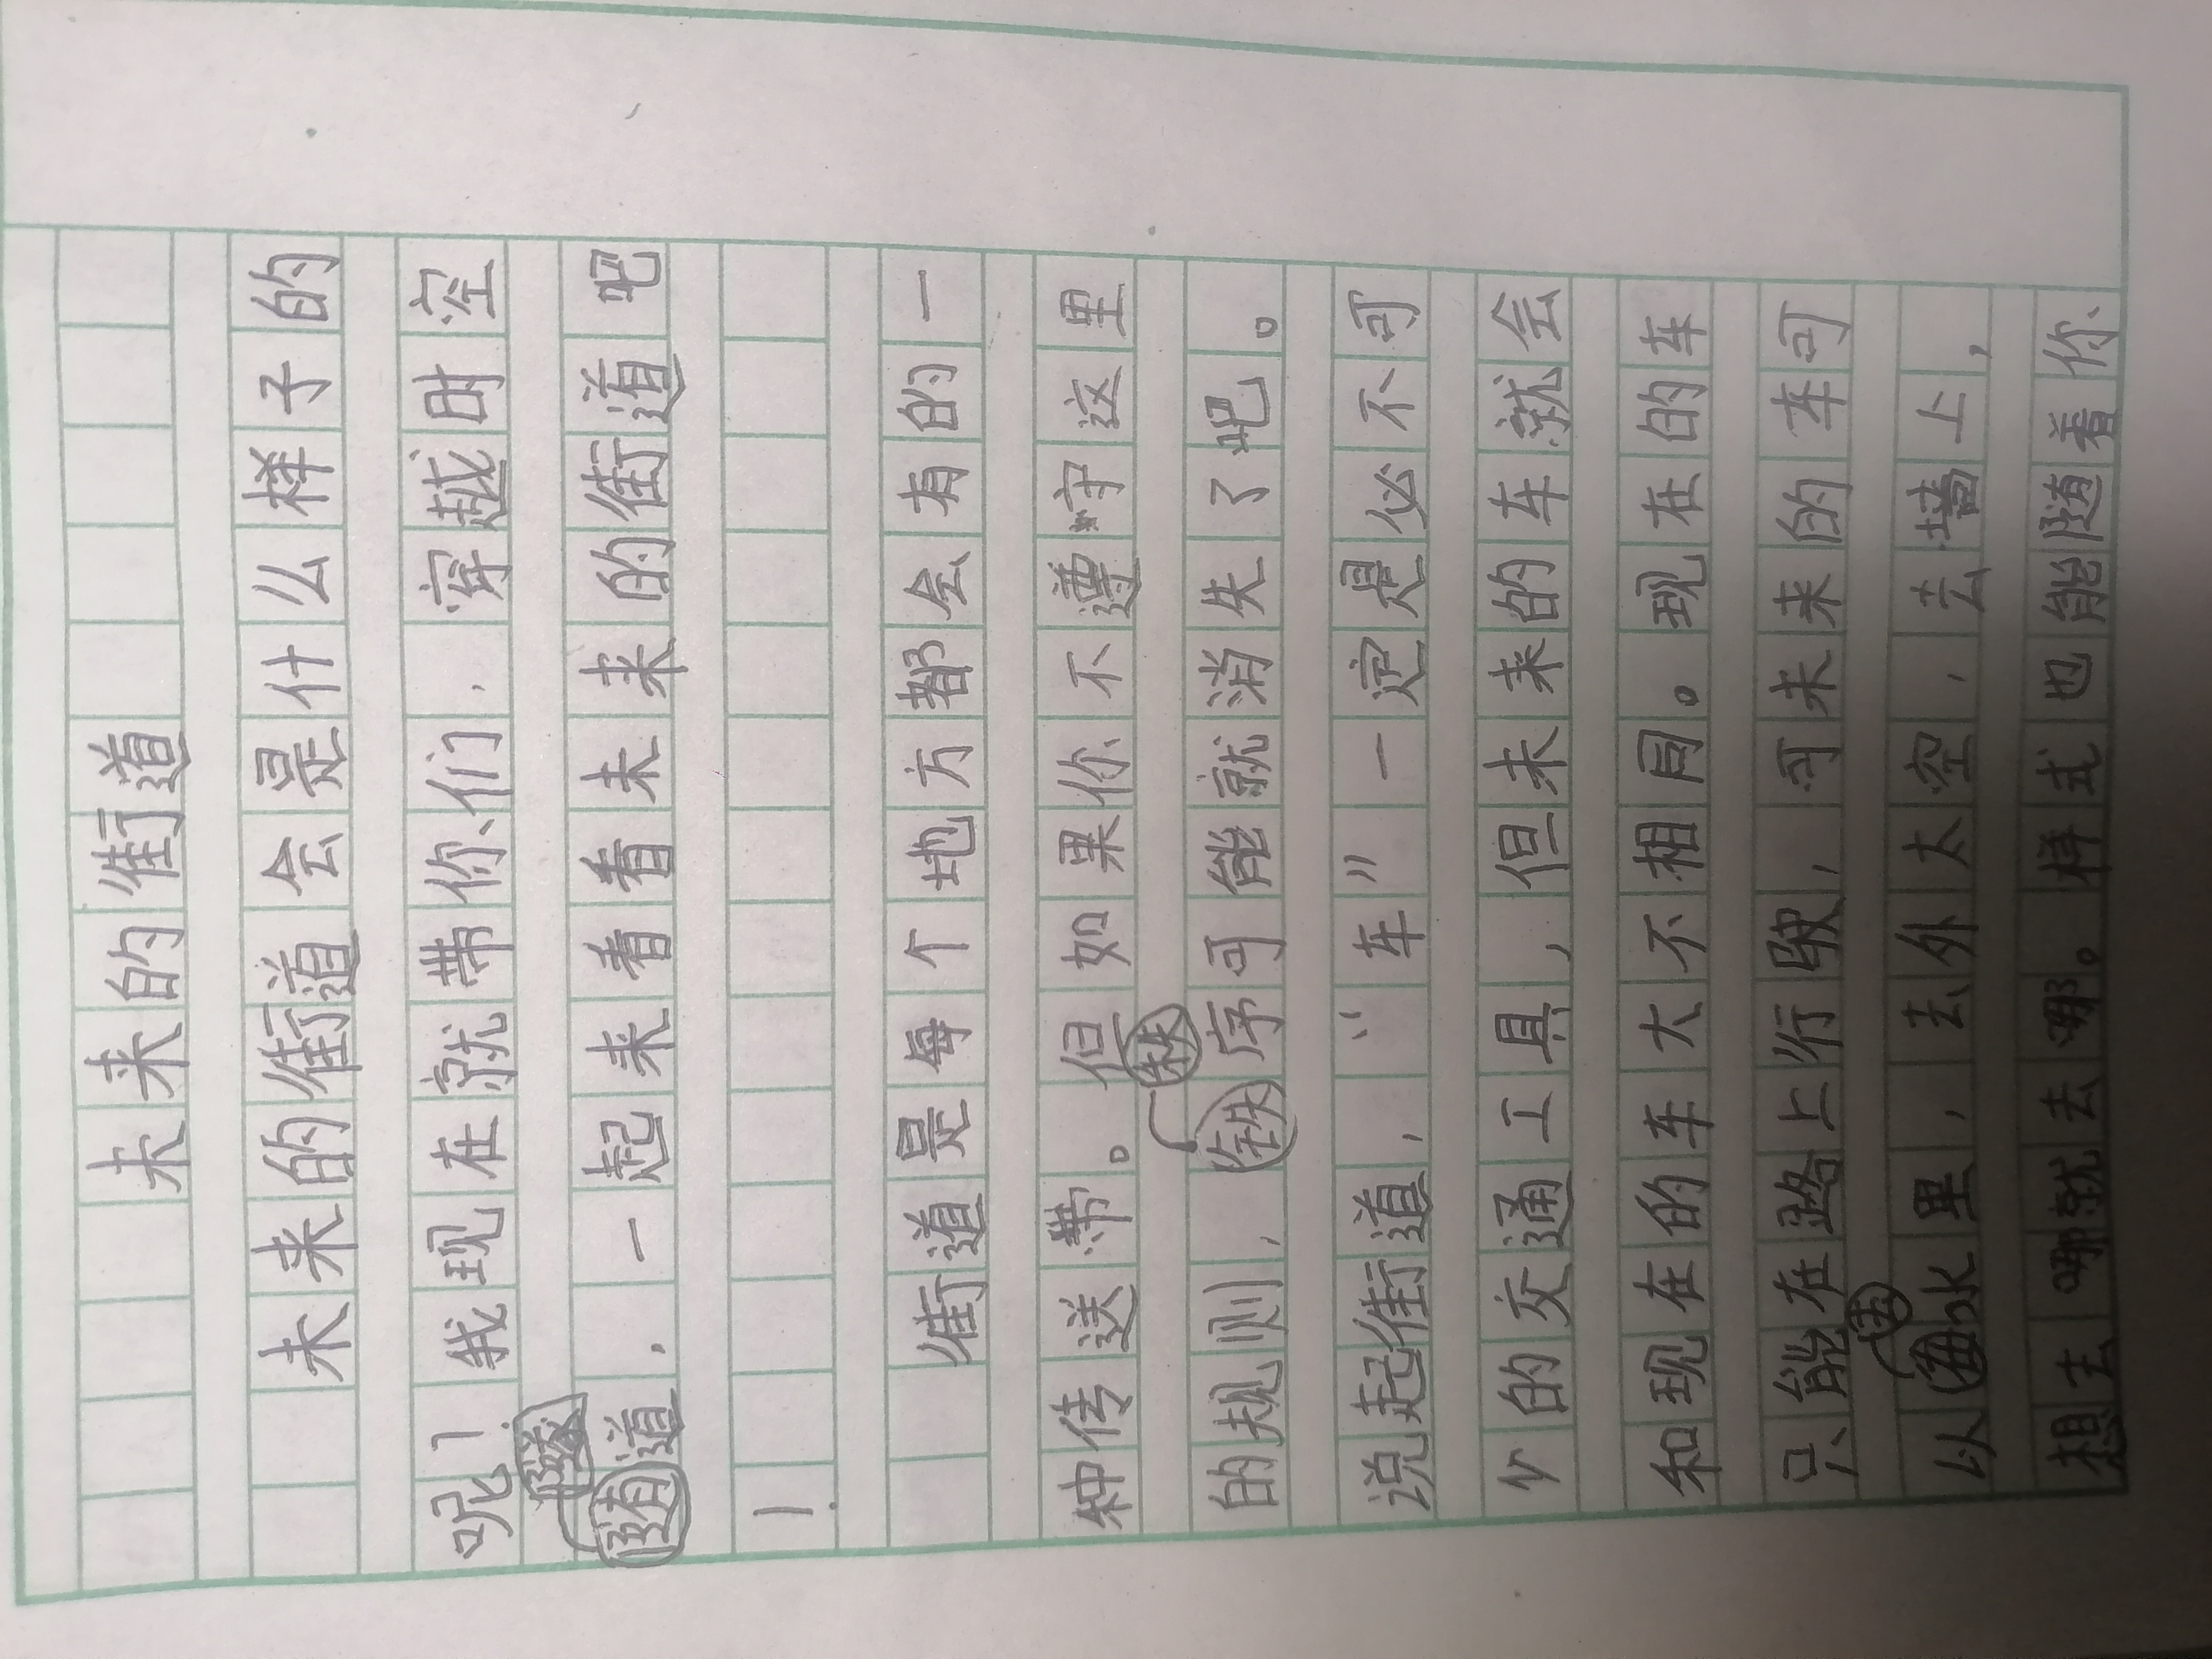 未来的街道
未来的街道会是什么样子的
呢？我现在就带你们，穿越时空
隧
随道，一起来看看未来的街道吧
！
街道是每个地方都会有的一
种传送带。但如果你不遵守这里
秩
的规则，铁序可能就消失了吧。
说起街道，“车”一定是必不可
少的交通工具，但未来的车就会
和现在的车大不相同。现在的车
只能在路上行驶，可未来的车可
以海水里，去外太空，去墙上，
想去哪就去哪。样式也能随着你